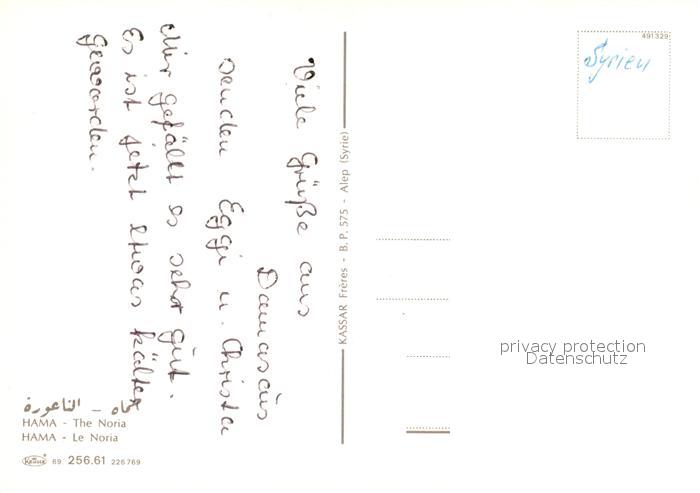 Viele Grüße aus
Damaskus
senden Eggi u. Christa
Mir gefällt es sehr gut.
Es ist jetzt etwas kälter
geworden.
حماه - الناعورة
HAMA - The Noria
HAMA - Le Noria
69 256.61 226769
KASSAR Frères - B. P. 575 - Alep (Syrie)
491329
Syrien
privacy protection
Datenschutz